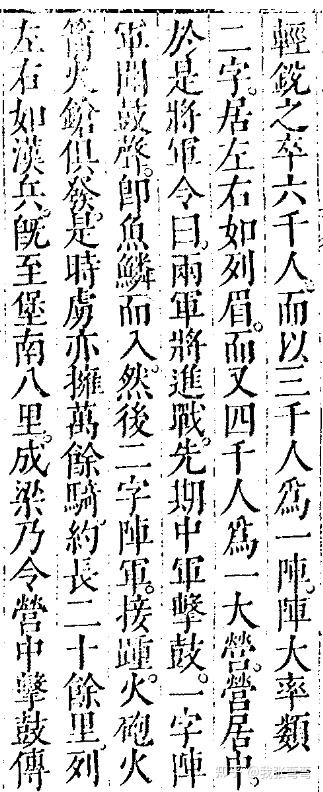 輕銳之卒六千人。而以三千人爲一陣。陣大率類
二字。居左右如列眉。而又四千人爲一大營。營居中。
於是將軍令曰。兩軍將進戰。先期中軍擊鼓。一字陣
軍聞鼓聲。卽魚鱗而入。然後二字陣軍。接踵。火砲火
箭火鎗俱發。是時虜亦擁萬餘騎。約長二十餘里。列
左右如漢兵。旣至堡南八里。成梁乃令營中擊鼓傳
知乎 @我张哥哥